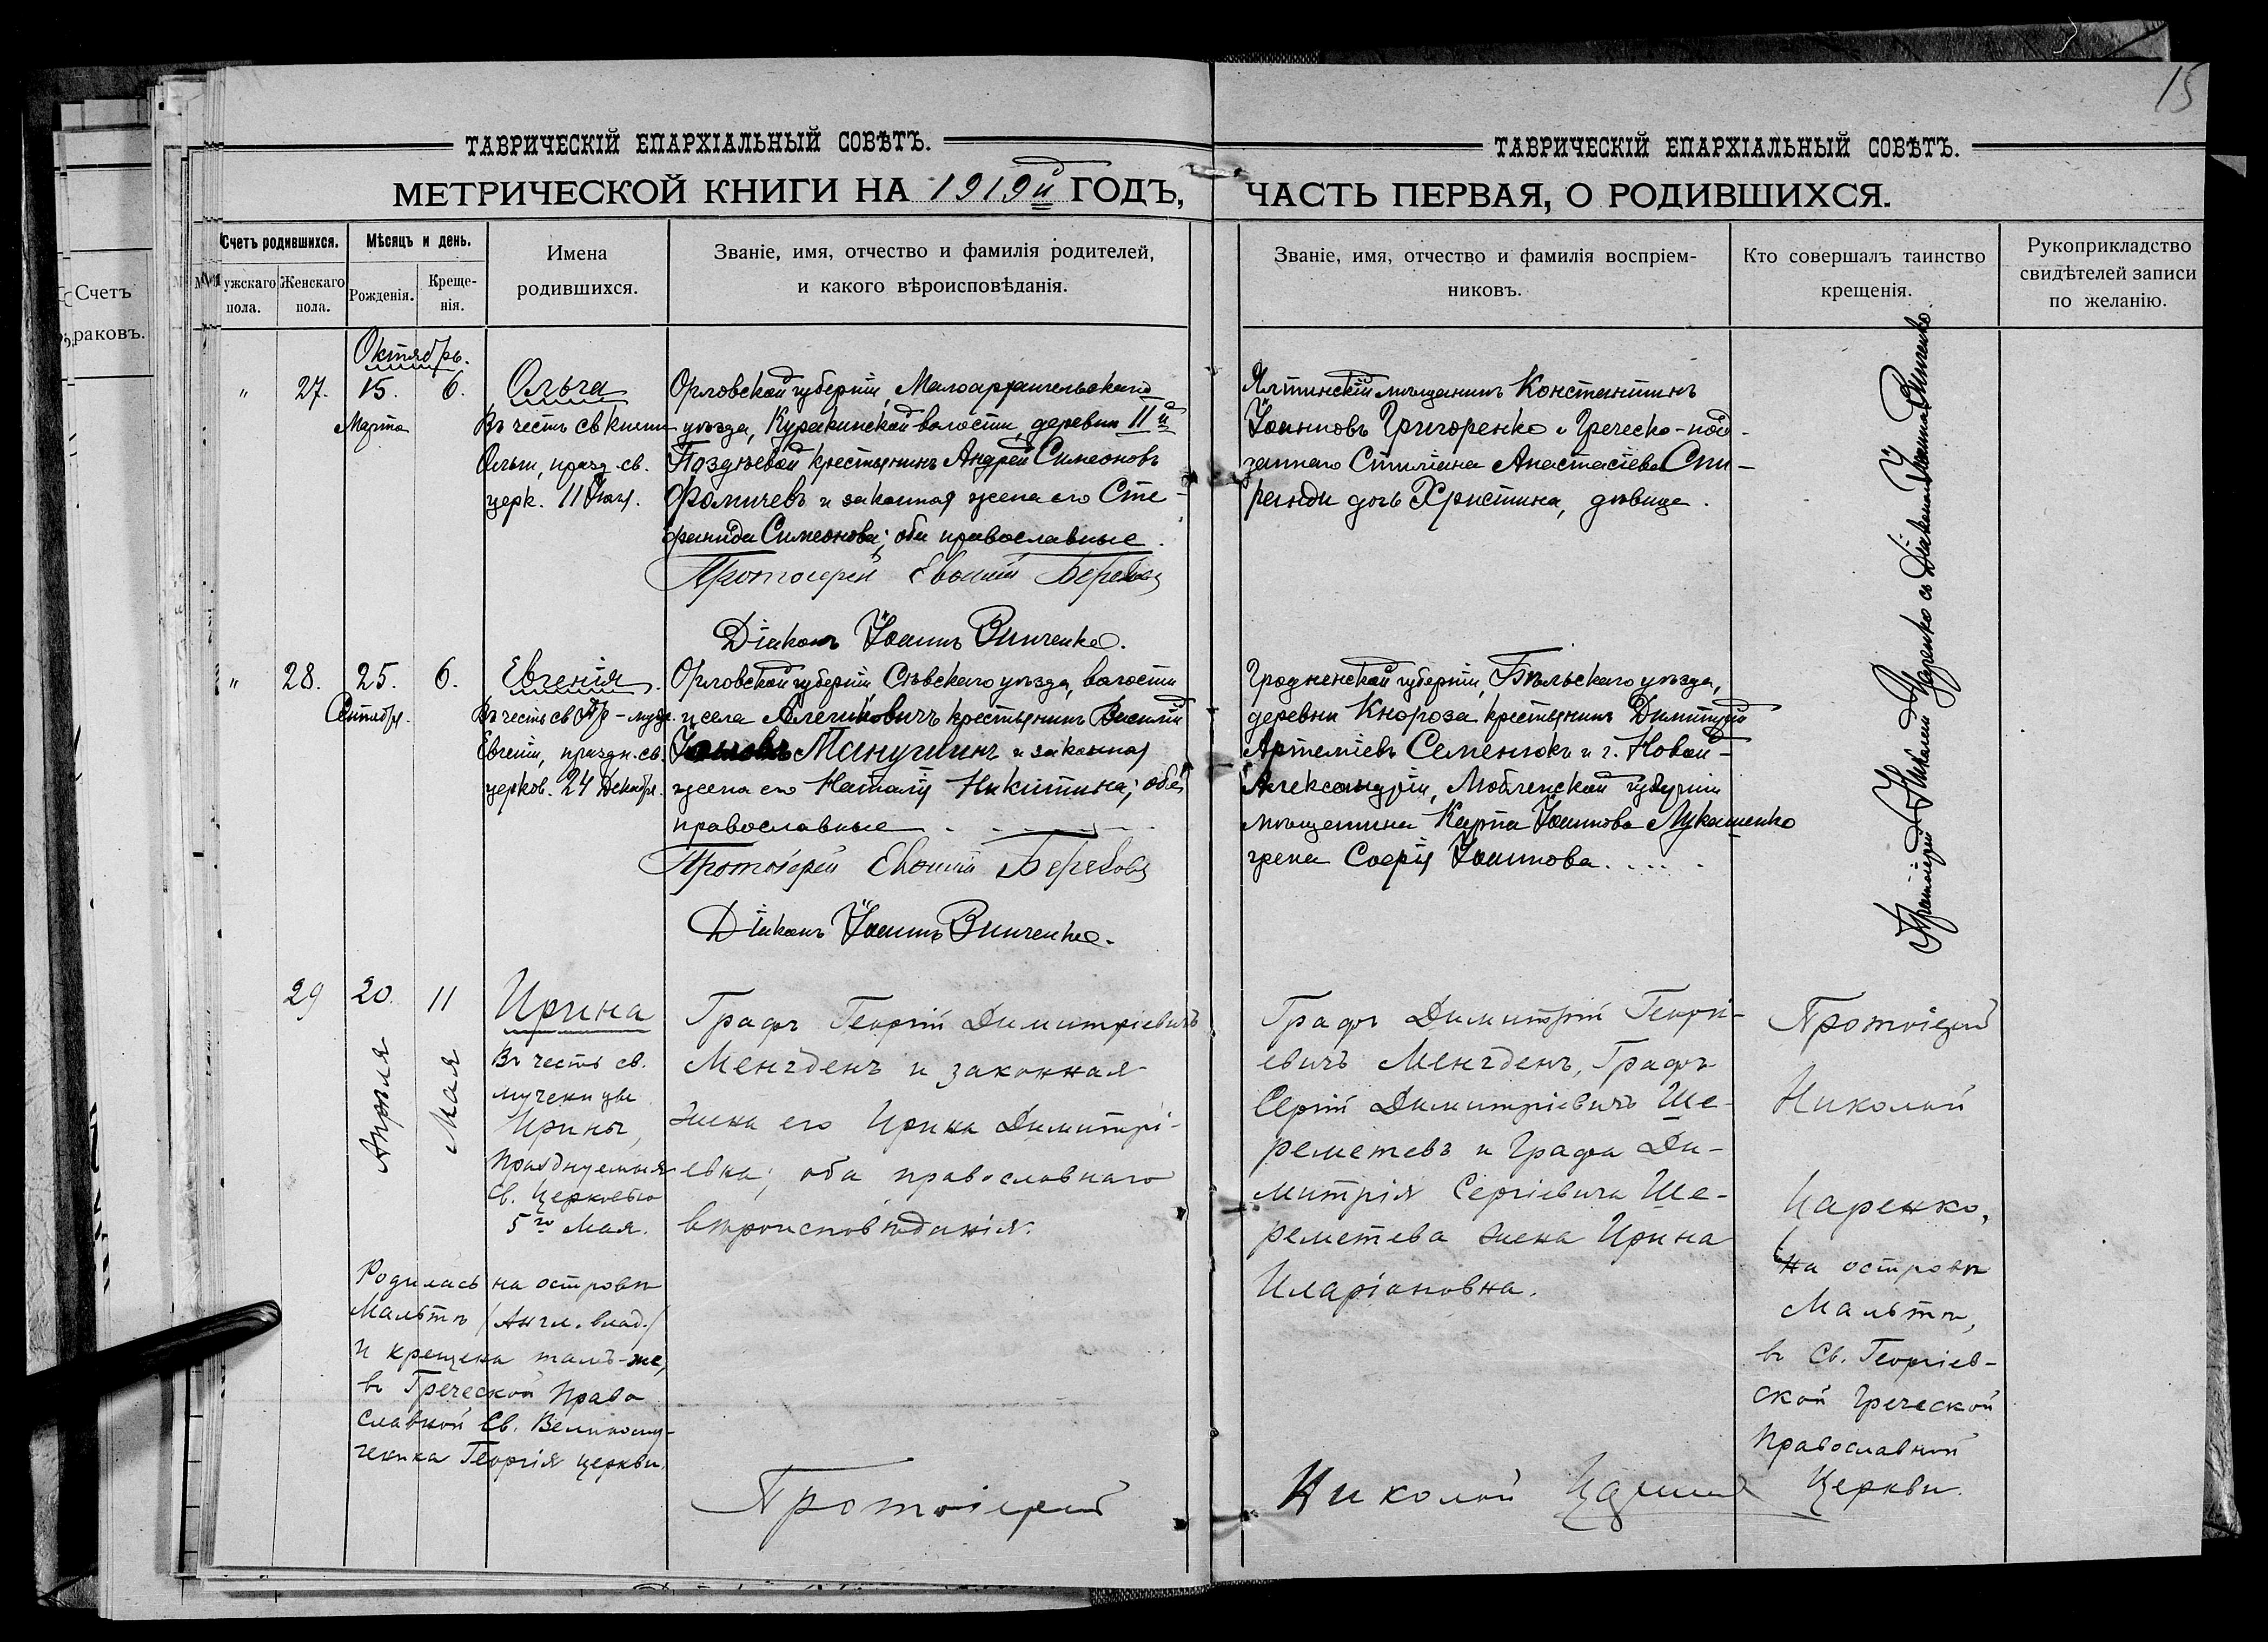 15
ТАВРИЧЕСКІЙ ЕПАРХІАЛЬНЫЙ СОВѢТЪ.
МЕТРИЧЕСКОЙ КНИГИ НА 1919й ГОДЪ,
Счетъ родившихся.
Мужскаго пола.
Женскаго пола.
Мѣсяцъ и день.
Рожденія.
Креще-
нія.
Имена
родившихся.
Званіе, имя, отчество и фамилія родителей,
и какого вѣроисповѣданія.
ТАВРИЧЕСКІЙ ЕПАРХІАЛЬНЫЙ СОВѢТЪ.
ЧАСТЬ ПЕРВАЯ, О РОДИВШИХСЯ.
Званіе, имя, отчество и фамилія воспріем-
никовъ.
Кто совершалъ таинство
крещенія.
Рукоприкладство
свидѣтелей записи
по желанію.
Счетъ
раковъ.
Октябрь.
" 27. 15. 6.
Марта
Ольга
Въ честь св княгин
Ольги, празд. св.
церк. 11 Іюля.
Орловской губерніи, Малоархангельскаго
уѣзда, Куракинской волости, деревни II й
Поздѣевой крестьянинъ Андрей Симеоновъ
Фомичевъ и законная жена его Сте-
фанида Симеонова; оба православные.
Протоіерей
Діаконъ Іоаннъ Винченко.
Ялтинскій мѣщанинъ Константинъ
Іоанновъ Григоренко и Греческо-под-
даннаго Стиліана Анастасіева Спи-
ранди дочь Христина, дѣвица.
" 28. 25. 6.
Сентября.
Евгенія.
Въ честь св Пр-муч.
Евгеніи, праздн. св.
церков. 24 Декабря.
Орловской губерніи, Сѣвскаго уѣзда, волости
и села Алешковичъ крестьянинъ Василій
Іоанновъ Манушинъ и законная
жена его Наталія Никитина; оба
православные
Протоіерей
Діаконъ Іоаннъ Винченко.
Гродненской губерніи, Бѣльскаго уѣзда,
деревни Кнороза крестьянинъ Димитрій
Артеміевъ Семенюкъ и г. Новой-
Александріи, Люблинской губерніи
мѣщанина Карпа Іоаннова Лукашенко
жена Софія Іоаннова.
Протоіерей Николай Царенко съ Діакономъ Іоанномъ Винченко
29 20. 11
Апрѣля
Мая
Ирина
Въ честь св.
мученицы
Ирины,
празднуемыя
Св. Церковью
5го Мая.
Родилась на островѣ
Мальтѣ /Англ. влад./
и крещена тамъ-же,
въ Греческой Право
славной Св. Великому-
ченика Георгія церкви.
Графъ Георгій Димитріевичъ
Менгденъ и законная
жена его Ирина Димитрі-
евна; оба православнаго
вѣроисповѣданія.
Протоіерей
Графъ Димитрій Георгі-
евичъ Менгденъ, Графъ
Сергій Димитріевичъ Ше-
реметевъ и Графа Ди-
митрія Сергіевича Ше-
реметева жена Ирина
Иларіоновна.
Николай Царенко
Протоіерей
Николай
Царенко,
на островѣ
Мальтѣ,
въ Св. Георгіев-
ской Греческой
Православной
Церкви.